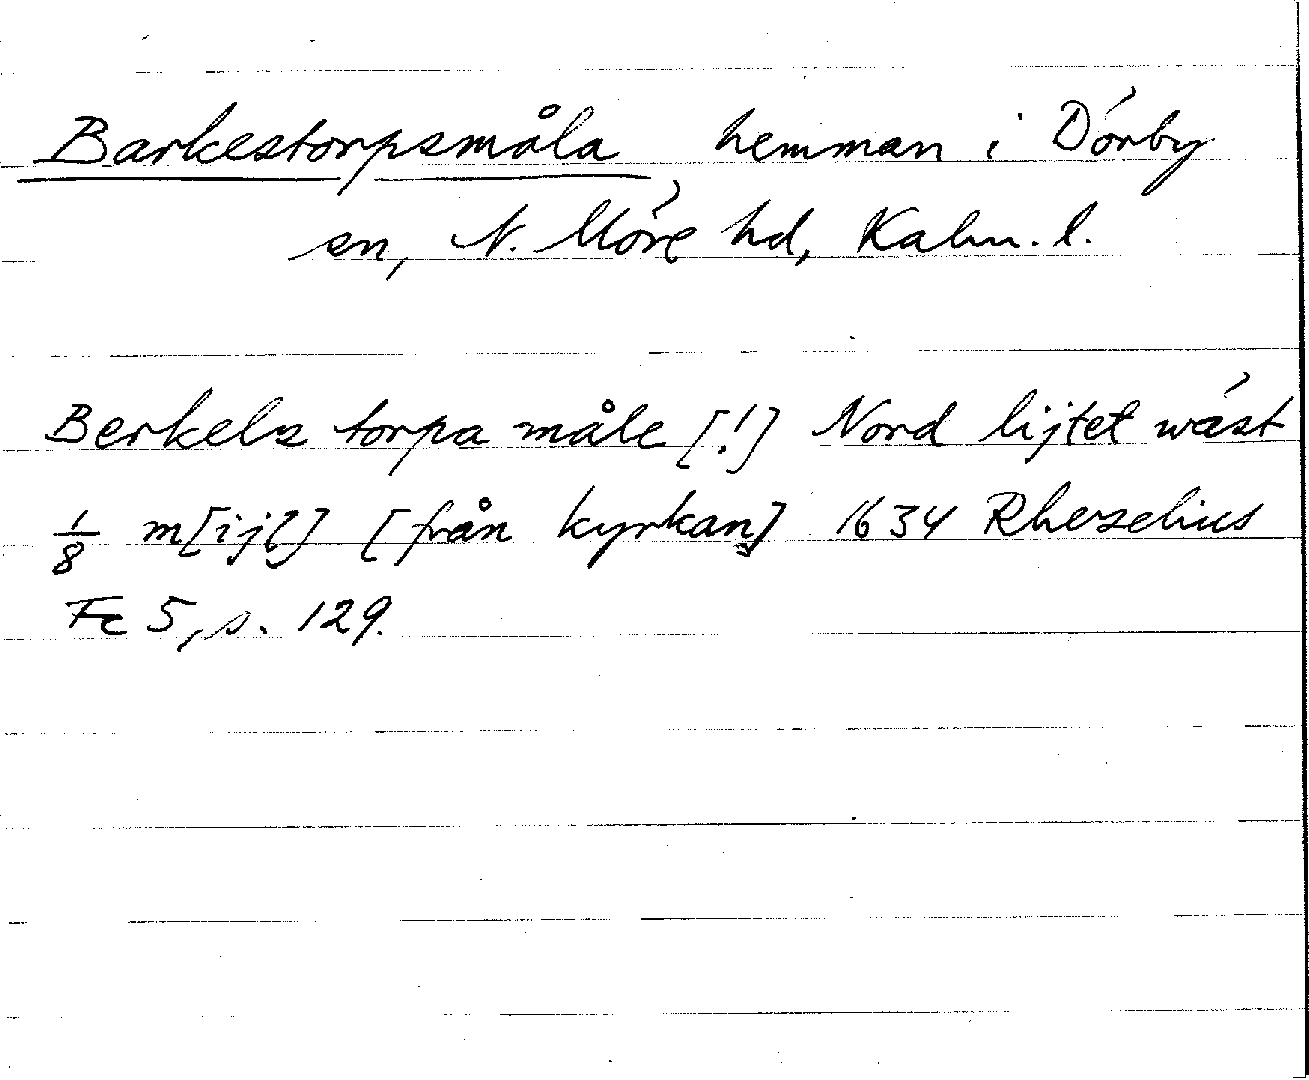 Barkestorpsmåla hemman i Dörby
sn, N. Möre hd, Kalm. l.
Berkels torpa måle [!] Nord lijtet wäst
1/8 m[ijl] [från kyrkan] 1634 Rhezelius
Fc 5, s. 129.